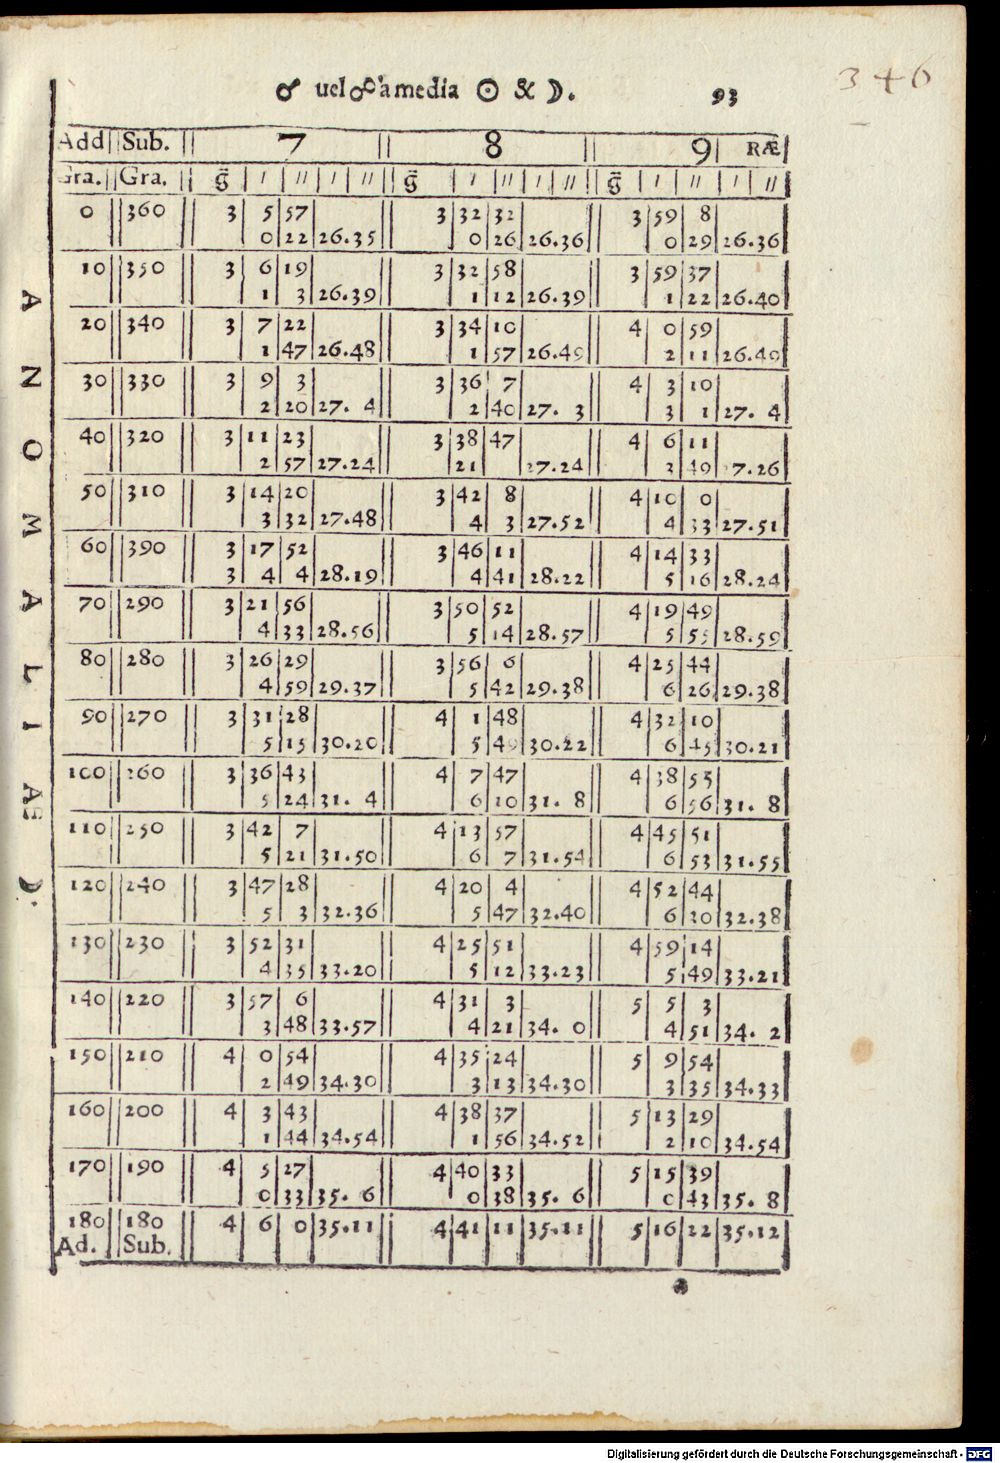 346
☌ uel ☍ à media ☉ & ☽. 93
Add Sub. 7 8 9 RÆ
Gra. Gra. g̃ ′ ″ ′ ″ g̃ ′ ″ ′ ″ g̃ ′ ″ ′ ″
0 360 3 5 57 3 32 32 3 59 8
0 22 26.35 0 26 26.36 0 29 26.36
10 350 3 6 19 3 32 58 3 59 37
1 3 26.39 1 12 26.39 1 22 26.40
20 340 3 7 22 3 34 10 4 0 59
1 47 26.48 1 57 26.49 2 11 26.49
30 330 3 9 3 3 36 7 4 3 10
2 20 27. 4 2 40 27. 3 3 1 27. 4
40 320 3 11 23 3 38 47 4 6 11
2 57 27.24 21 27.24 3 49 27.26
50 310 3 14 20 3 42 8 4 10 0
3 32 27.48 4 3 27.52 4 33 27.51
60 390 3 17 52 3 46 11 4 14 33
3 4 4 28.19 4 41 28.22 5 16 28.24
70 290 3 21 56 3 50 52 4 19 49
4 33 28.56 5 14 28.57 5 55 28.59
80 280 3 26 29 3 56 6 4 25 44
4 59 29.37 5 42 29.38 6 26 29.38
90 270 3 31 28 4 1 48 4 32 10
5 15 30.20 5 49 30.22 6 45 30.21
100 260 3 36 43 4 7 47 4 38 55
5 24 31. 4 6 10 31. 8 6 56 31. 8
110 250 3 42 7 4 13 57 4 45 51
5 21 31.50 6 7 31.54 6 53 31.55
120 240 3 47 28 4 20 4 4 52 44
5 3 32.36 5 47 32.40 6 30 32.38
130 230 3 52 31 4 25 51 4 59 14
4 35 33.20 5 12 33.23 5 49 33.21
140 220 3 57 6 4 31 3 5 5 3
3 48 33.57 4 21 34. 0 4 51 34. 2
150 210 4 0 54 4 35 24 5 9 54
2 49 34.30 3 13 34.30 3 35 34.33
160 200 4 3 43 4 38 37 5 13 29
1 44 34.54 1 56 34.52 2 10 34.54
170 190 4 5 27 4 40 33 5 15 39
0 33 35. 6 0 38 35. 6 0 43 35. 8
180 180 4 6 0 35.11 4 41 11 35.11 5 16 22 35.12
Ad. Sub.
ANOMALIAE ☽.
Digitalisierung gefördert durch die Deutsche Forschungsgemeinschaft - DFG